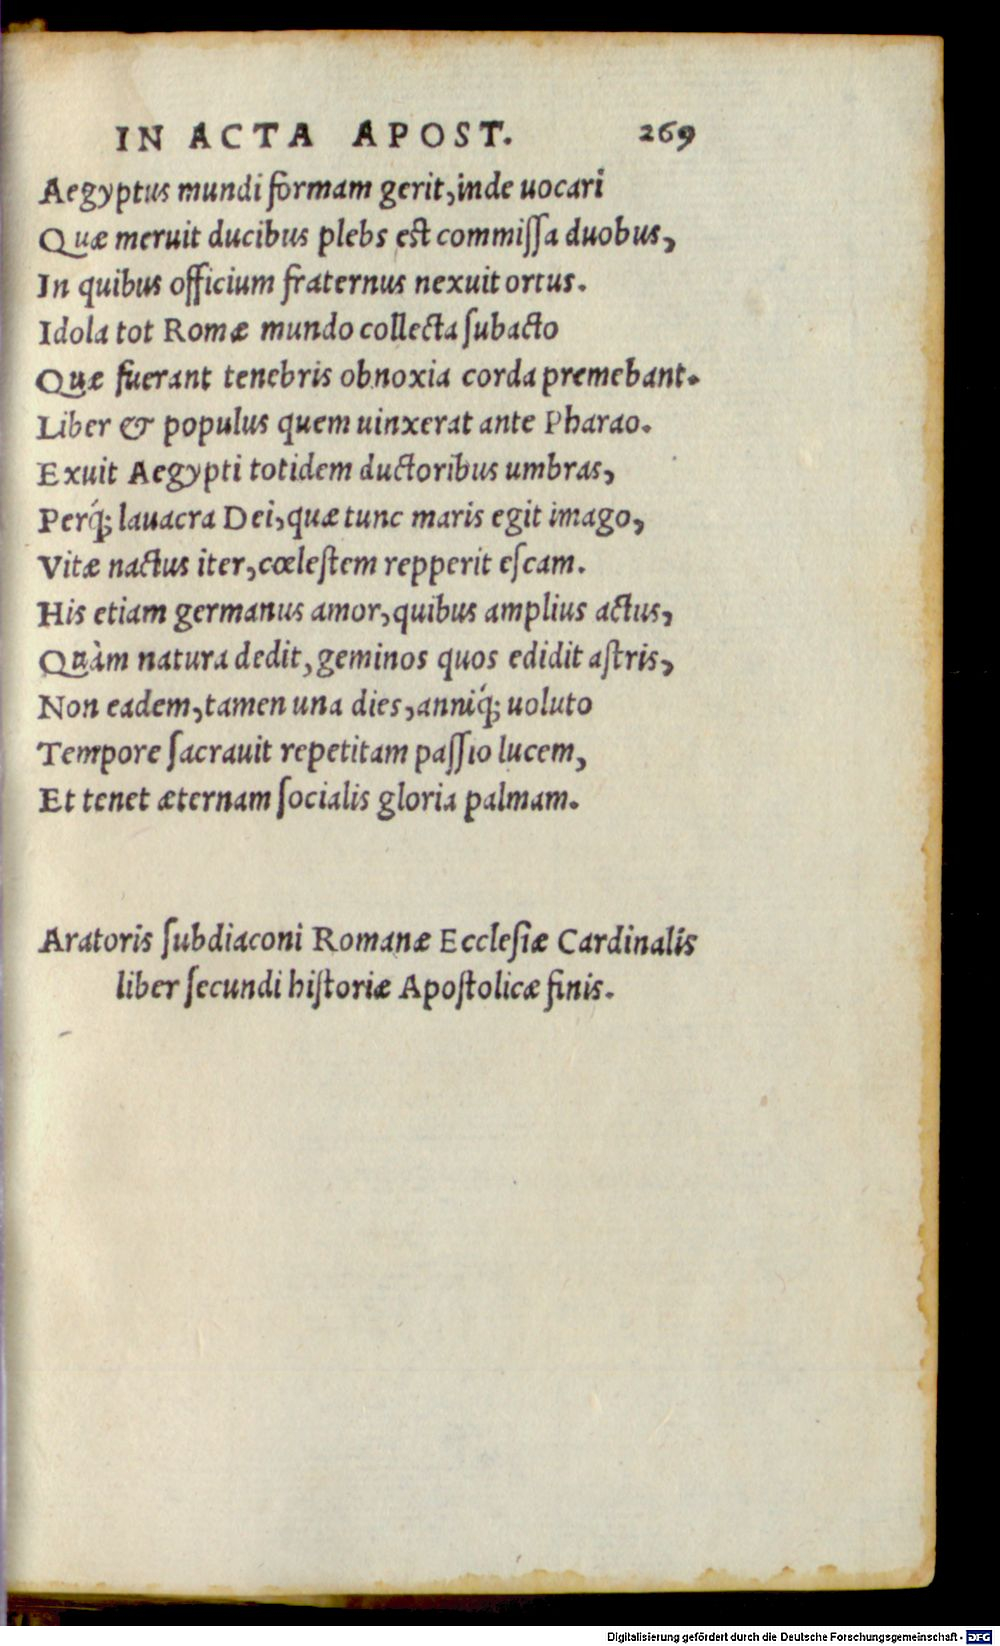 IN ACTA APOST. 269
Aegyptus mundi formam gerit, inde uocari
Quæ meruit ducibus plebs est commiſſa duobus,
In quibus officium fraternus nexuit ortus.
Idola tot Romæ mundo collecta ſubacto
Quæ fuerant tenebris obnoxia corda premebant.
Liber & populus quem uinxerat ante Pharao.
Exuit Aegypti totidem ductoribus umbras,
Perq́; lauacra Dei, quæ tunc maris egit imago,
Vitæ nactus iter, cœleſtem repperit eſcam.
His etiam germanus amor, quibus amplius actus,
Quàm natura dedit, geminos quos edidit aſtris,
Non eadem, tamen una dies, anniq́; uoluto
Tempore ſacrauit repetitam paſſio lucem,
Et tenet æternam ſocialis gloria palmam.
Aratoris ſubdiaconi Romanæ Eccleſiæ Cardinalis
liber ſecundi hiſtoriæ Apoſtolicæ finis.
Digitalisierung gefördert durch die Deutsche Forschungsgemeinschaft - DFG